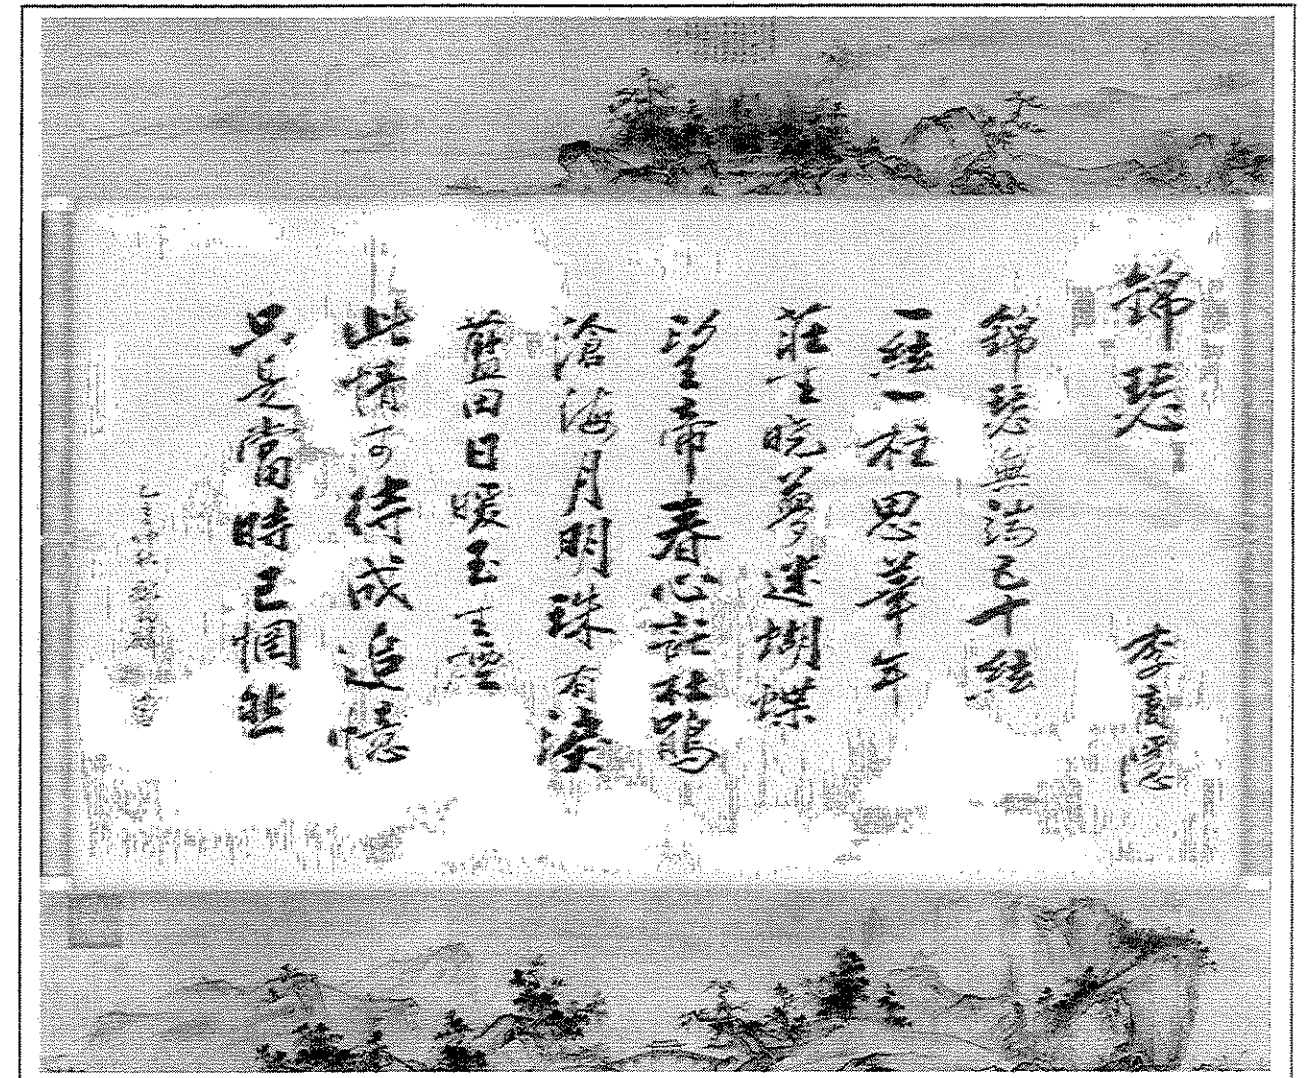 錦瑟 李商隱
錦瑟無端五十絃
一絃一柱思華年
莊生曉夢迷蝴蝶
望帝春心託杜鵑
滄海月明珠有淚
藍田日暖玉生煙
此情可待成追憶
只是當時已惘然